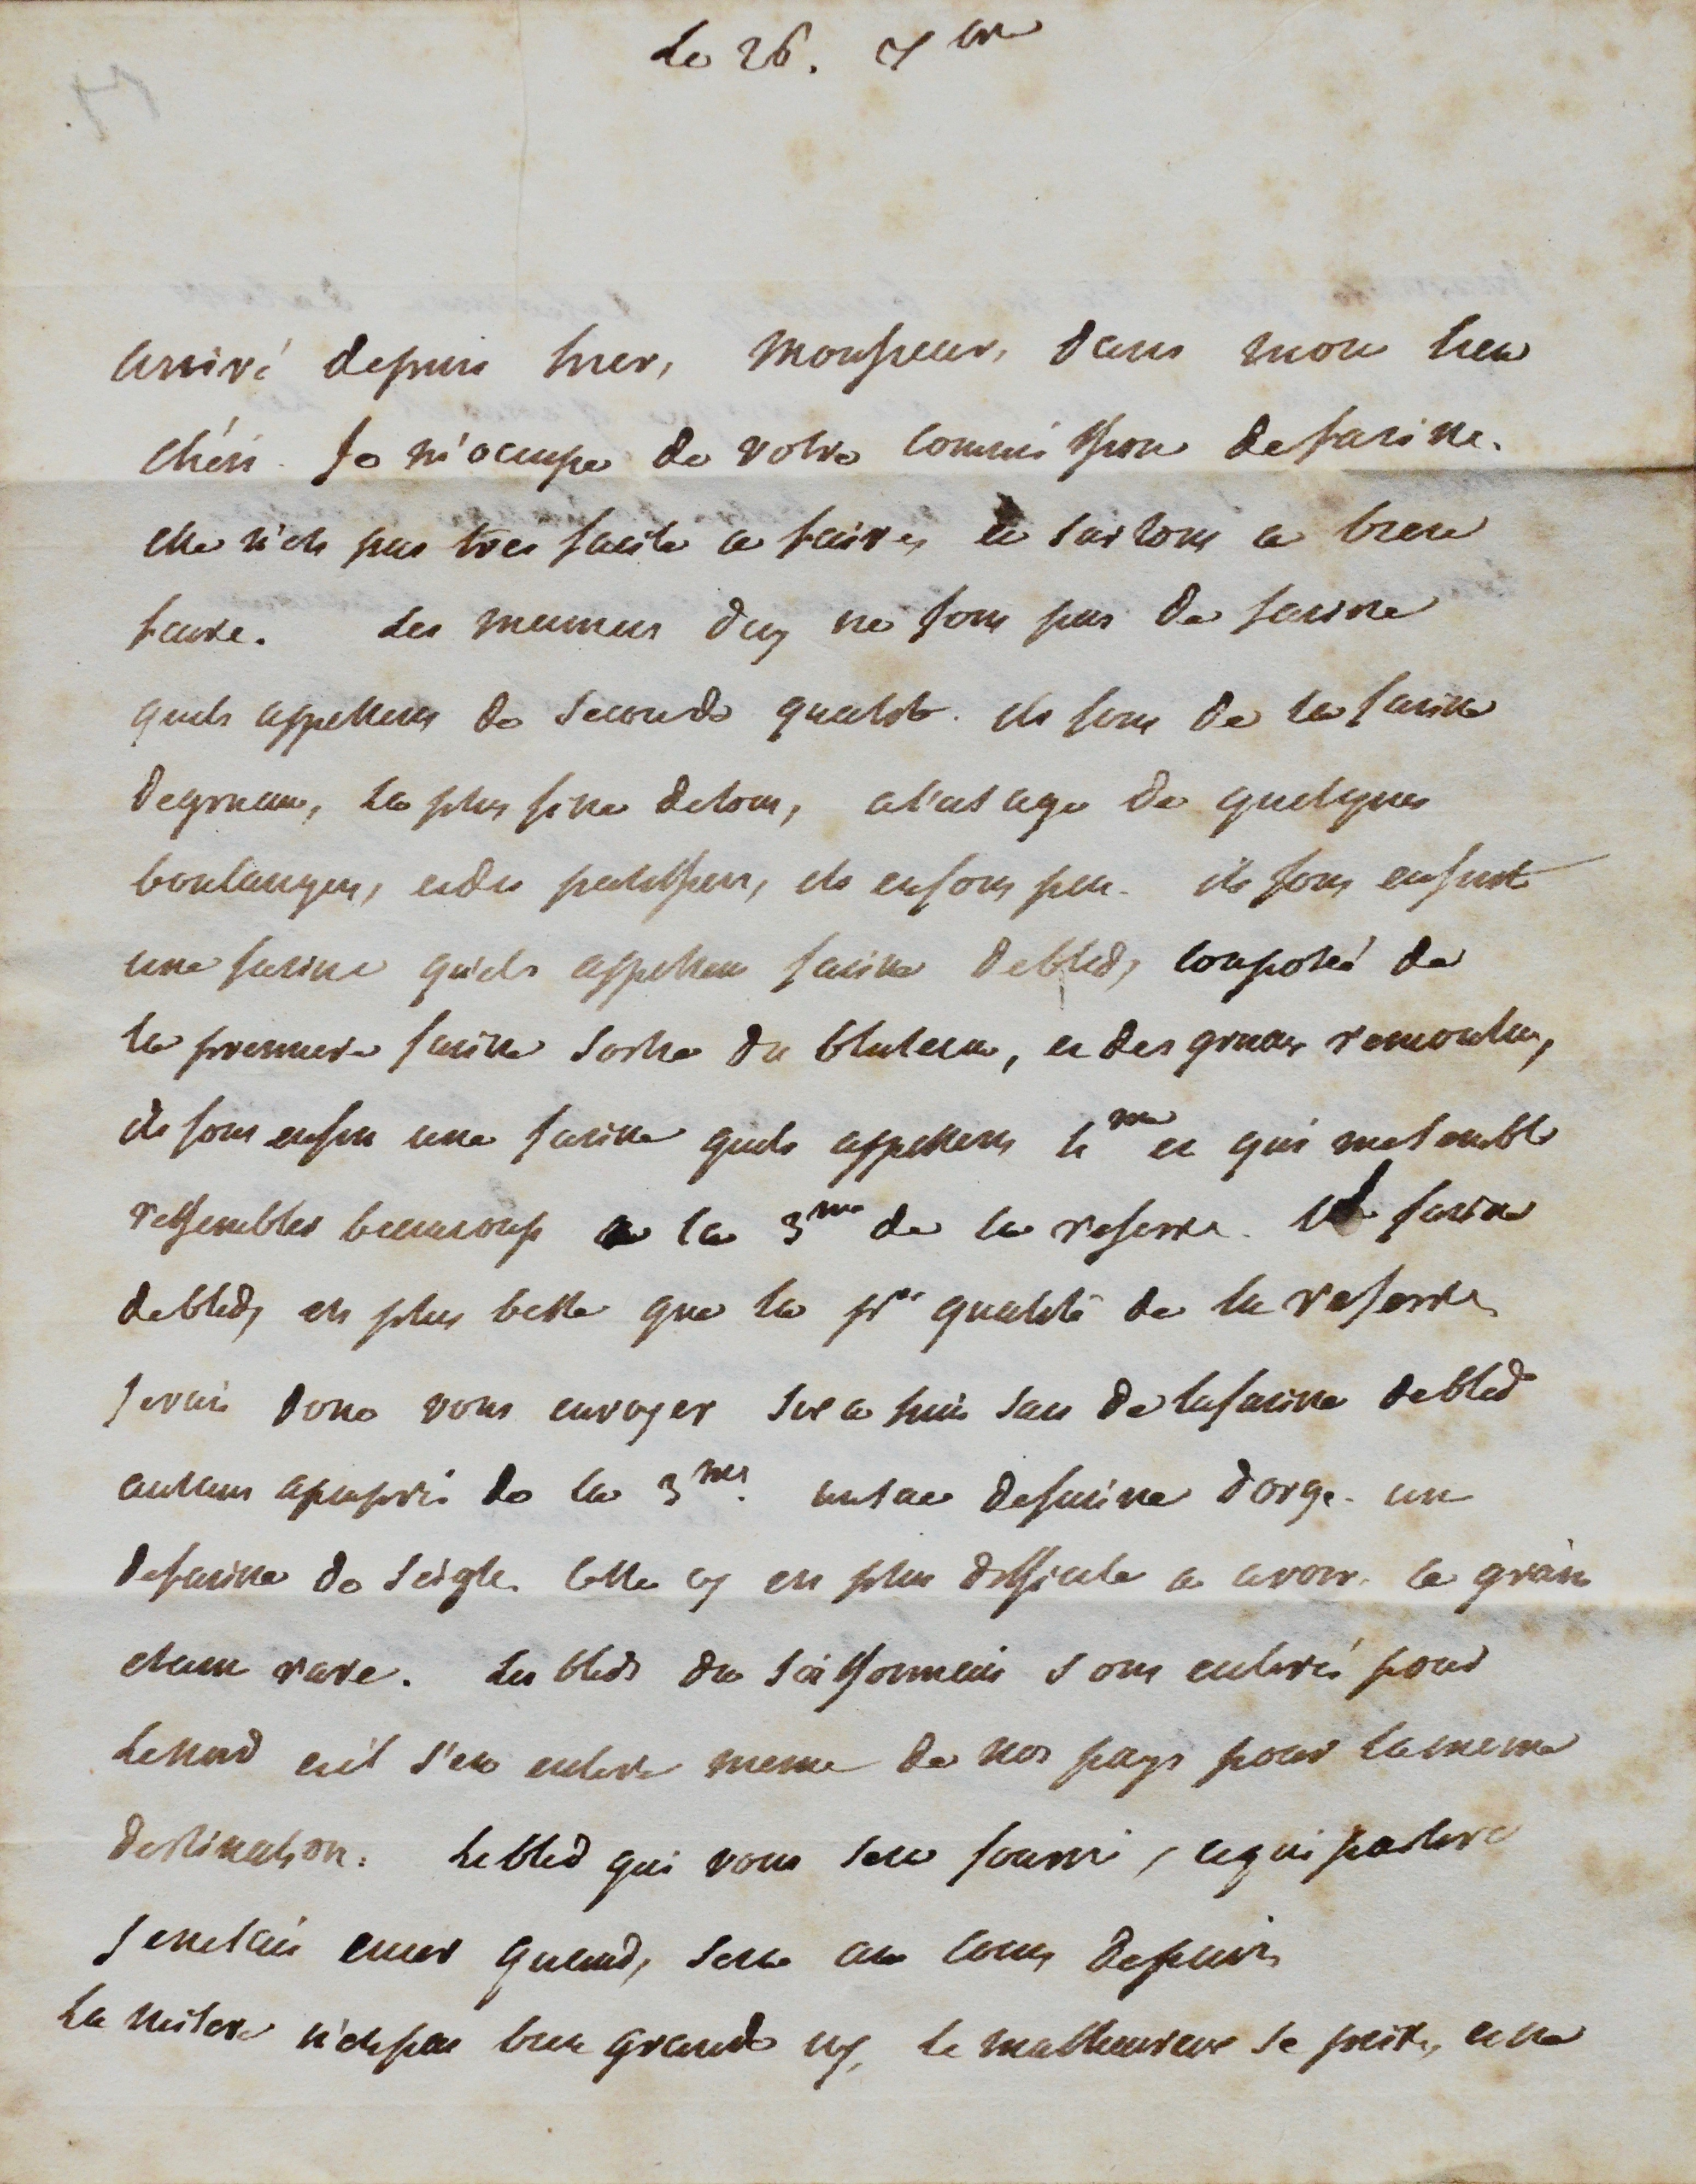 Le 26. 7bre
arrivé depuis hier, Monsieur, dans mon lieu
chéri. Je m'occupe de votre commission de farine.
elle n'est pas tres facile a faire, et surtout a bien
faire. Les meuniers d'icy ne font pas de farine
quils appellent de seconde qualité. ils font de la farine
de gruau, la plus fine de tout, a l'usage de quelques
boulangers, et des patissiers, ils en font peu. ils font ensuite
une farine qu'ils appellent farine de bled, composée de
la premiere farine sortie du bluteau, et des gruaux remoulus,
ils font enfin une farine quils appellent me et qui me semble
ressembler beaucoup a la 3me de la reserve. la farine
de bled, est plus belle que la pre qualité de la reserve.
Je vais donc vous envoyer six a huit sacs de la farine de bled
autant apeuprès de la 3me. un sac de farine d'orge. un
de farine de seigle. Celle cy est plus difficile a avoir. ce grain
etant rare. Les bleds du Soissonnais sont enlevés pour
le nord et il s'en enleve meme de nos pays pour la meme
destination. Le bled qui vous sera fourni, et qui partira
je ne sais encor quand, sera au cours depuis
La misere n'est pas bien grande icy, le malheureux se prive, et ne